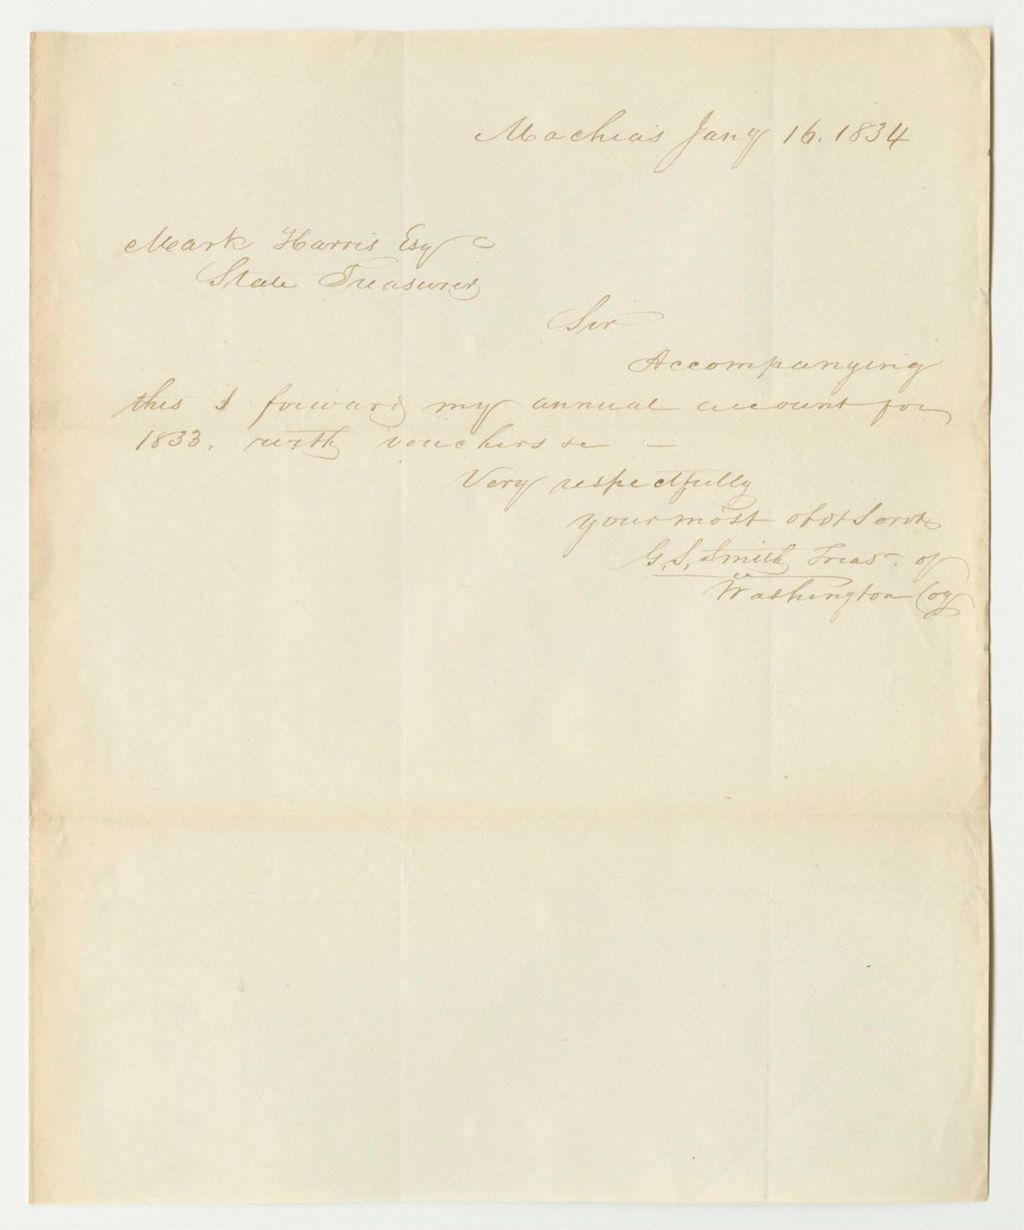 Machias Jany 16. 1834
Mark Harris Esq
State Treasurer
Sir
Accompanying
this I forward my annual account for
1833. with vouchers &c —
Very respectfully
your most obdt Servt
G. S. Smith Treasr. of
Washington Coy